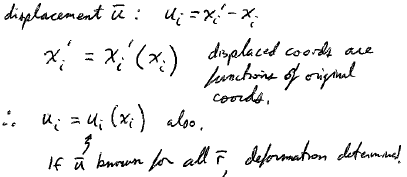 displacement ū : uᵢ = xᵢ' - xᵢ
xᵢ' = xᵢ'(xᵢ) displaced coords are
functions of original
coords.
∴ uᵢ = uᵢ(xᵢ) also.
If ū known for all r̄, deformation determined.